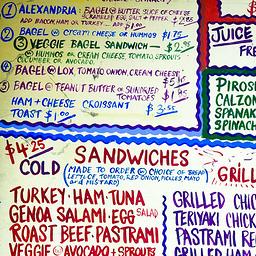 ① ALEXANDRIA: BAGEL @ BUTTER SLICE OF CHEESE
SCRAMBLED EGG, SALT + PEPPER
ADD BACON HAM OR TURKEY... ADD
② BAGEL @ CREAM CHEESE OR HUMMOS $1.75
③ VEGGIE BAGEL SANDWICH — $2.95
HUMMOS OR CREAM CHEESE, TOMATO, SPROUTS
CUCUMBER OR AVOCADO.
④ BAGEL @ LOX, TOMATO, ONION, CREAM CHEESE
⑤ BAGEL @ PEANUT BUTTER OR SUNDRIED
TOMATOES
HAM + CHEESE CROISSANT $3.55
TOAST $1.00
JUICE
FRE
PIROS
CALZON
SPANAK
SPINACH
$4.25
COLD SANDWICHES
(MADE TO ORDER @ CHOICE OF BREAD
LETTUCE, TOMATO, RED ONION, PICKLES, MAYO
and MUSTARD)
TURKEY · HAM · TUNA
GENOA SALAMI · EGG SALAD
ROAST BEEF · PASTRAMI
VEGGIE @ AVOCADO + SPROUTS
GRILL
GRILLED CHIC
TERIYAKI CHICK
PASTRAMI RE
GRILLED HAM